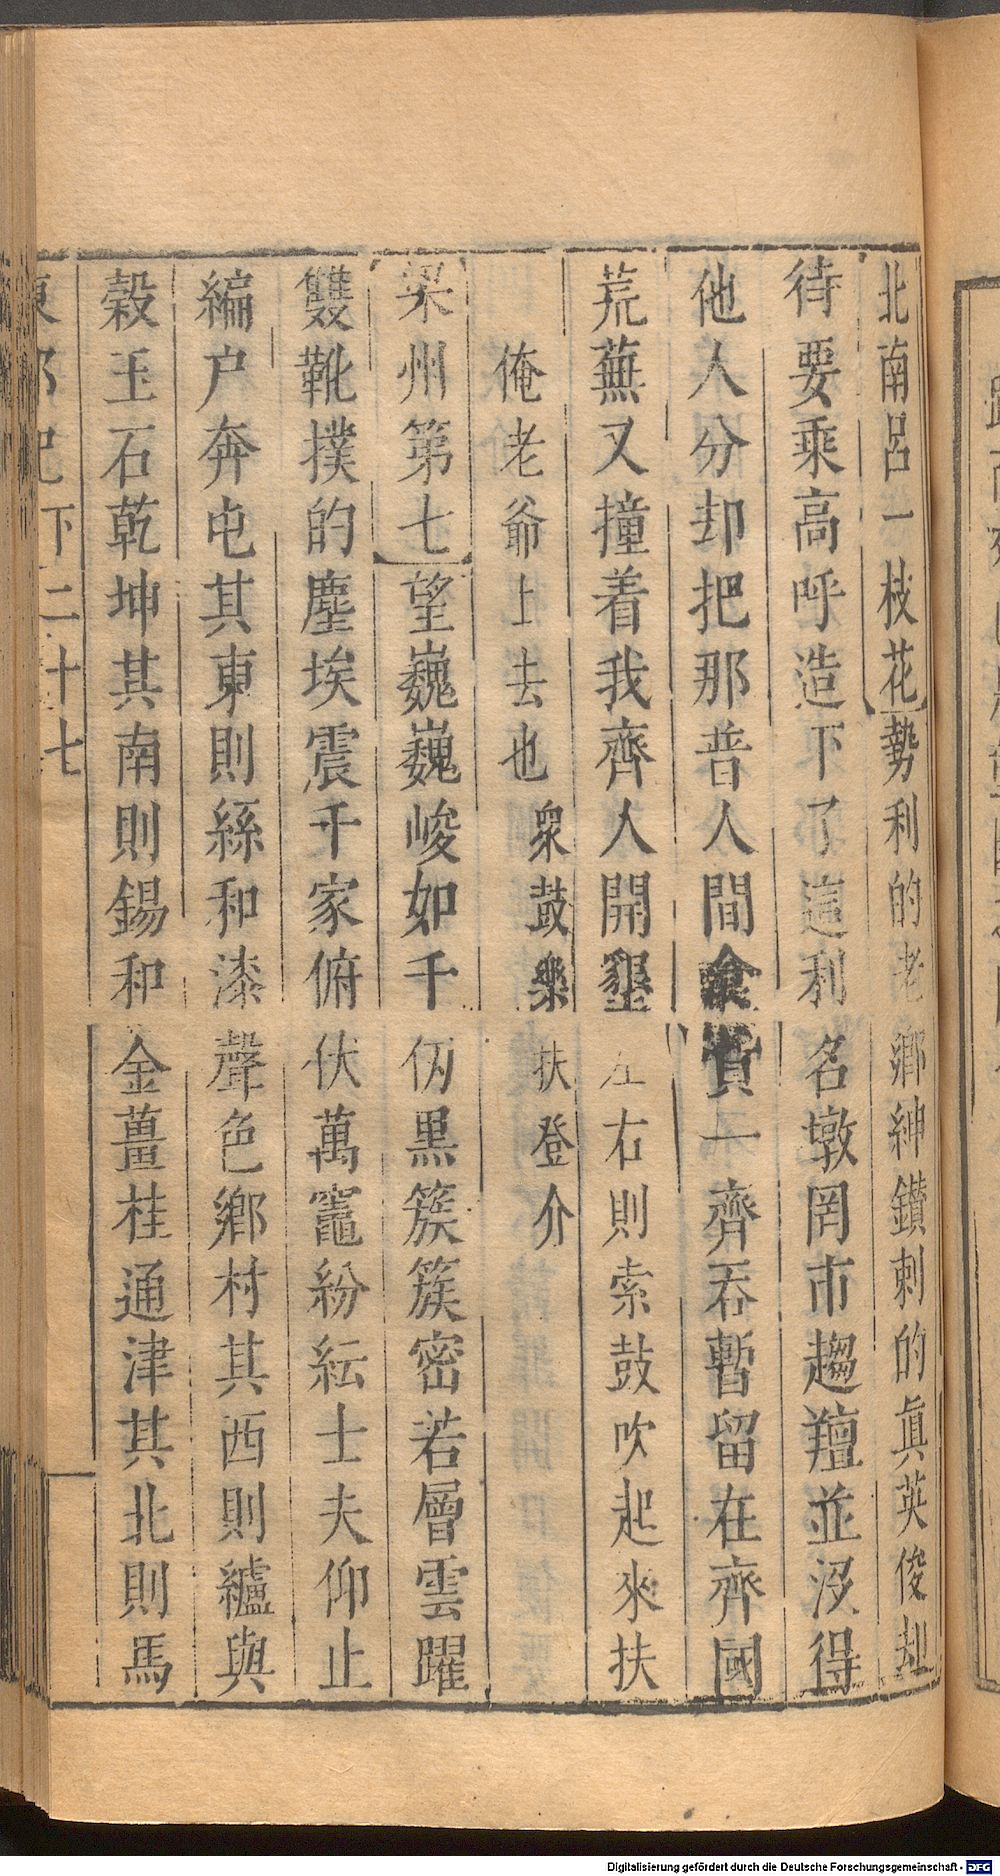 北南呂一枝花勢利的老鄉紳鑽刺的眞英俊却
待要乘高呼造下了這利名墩罔市趨羶並沒得
他人分却把那普人間一齊吞暫留在齊國
荒蕪又撞着我齊人開墾左右則索鼓吹起來扶
俺老爺上去也衆鼓樂扶登介
梁州第七望巍巍峻如千仞黑簇簇密若層雲躍
雙靴撲的塵埃震千家俯伏萬竈紛紜士夫仰止
編户奔屯其東則絲和漆聲色鄉村其西則纑與
榖玉石乾坤其南則錫和金薑桂通津其北則馬
東郭記下二十七
Digitalisierung gefördert durch die Deutsche Forschungsgemeinschaft - DFG